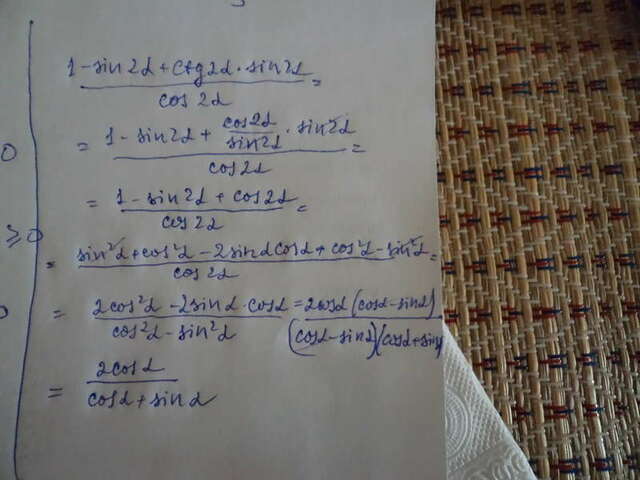 1-sin2α+ctg2α·sin2α
cos2α =
= 1-sin2α+ cos2α/sin2α · sin2α
cos2α =
= 1-sin2α+cos2α
cos2α =
0
≥0
= sin²α+cos²α-2sinαcosα+cos²α-sin²α
cos2α =
= 2cos²α-2sinα·cosα = 2cosα(cosα-sinα)
cos²α-sin²α (cosα-sinα)(cosα+sinα)
= 2cosα
cosα+sinα